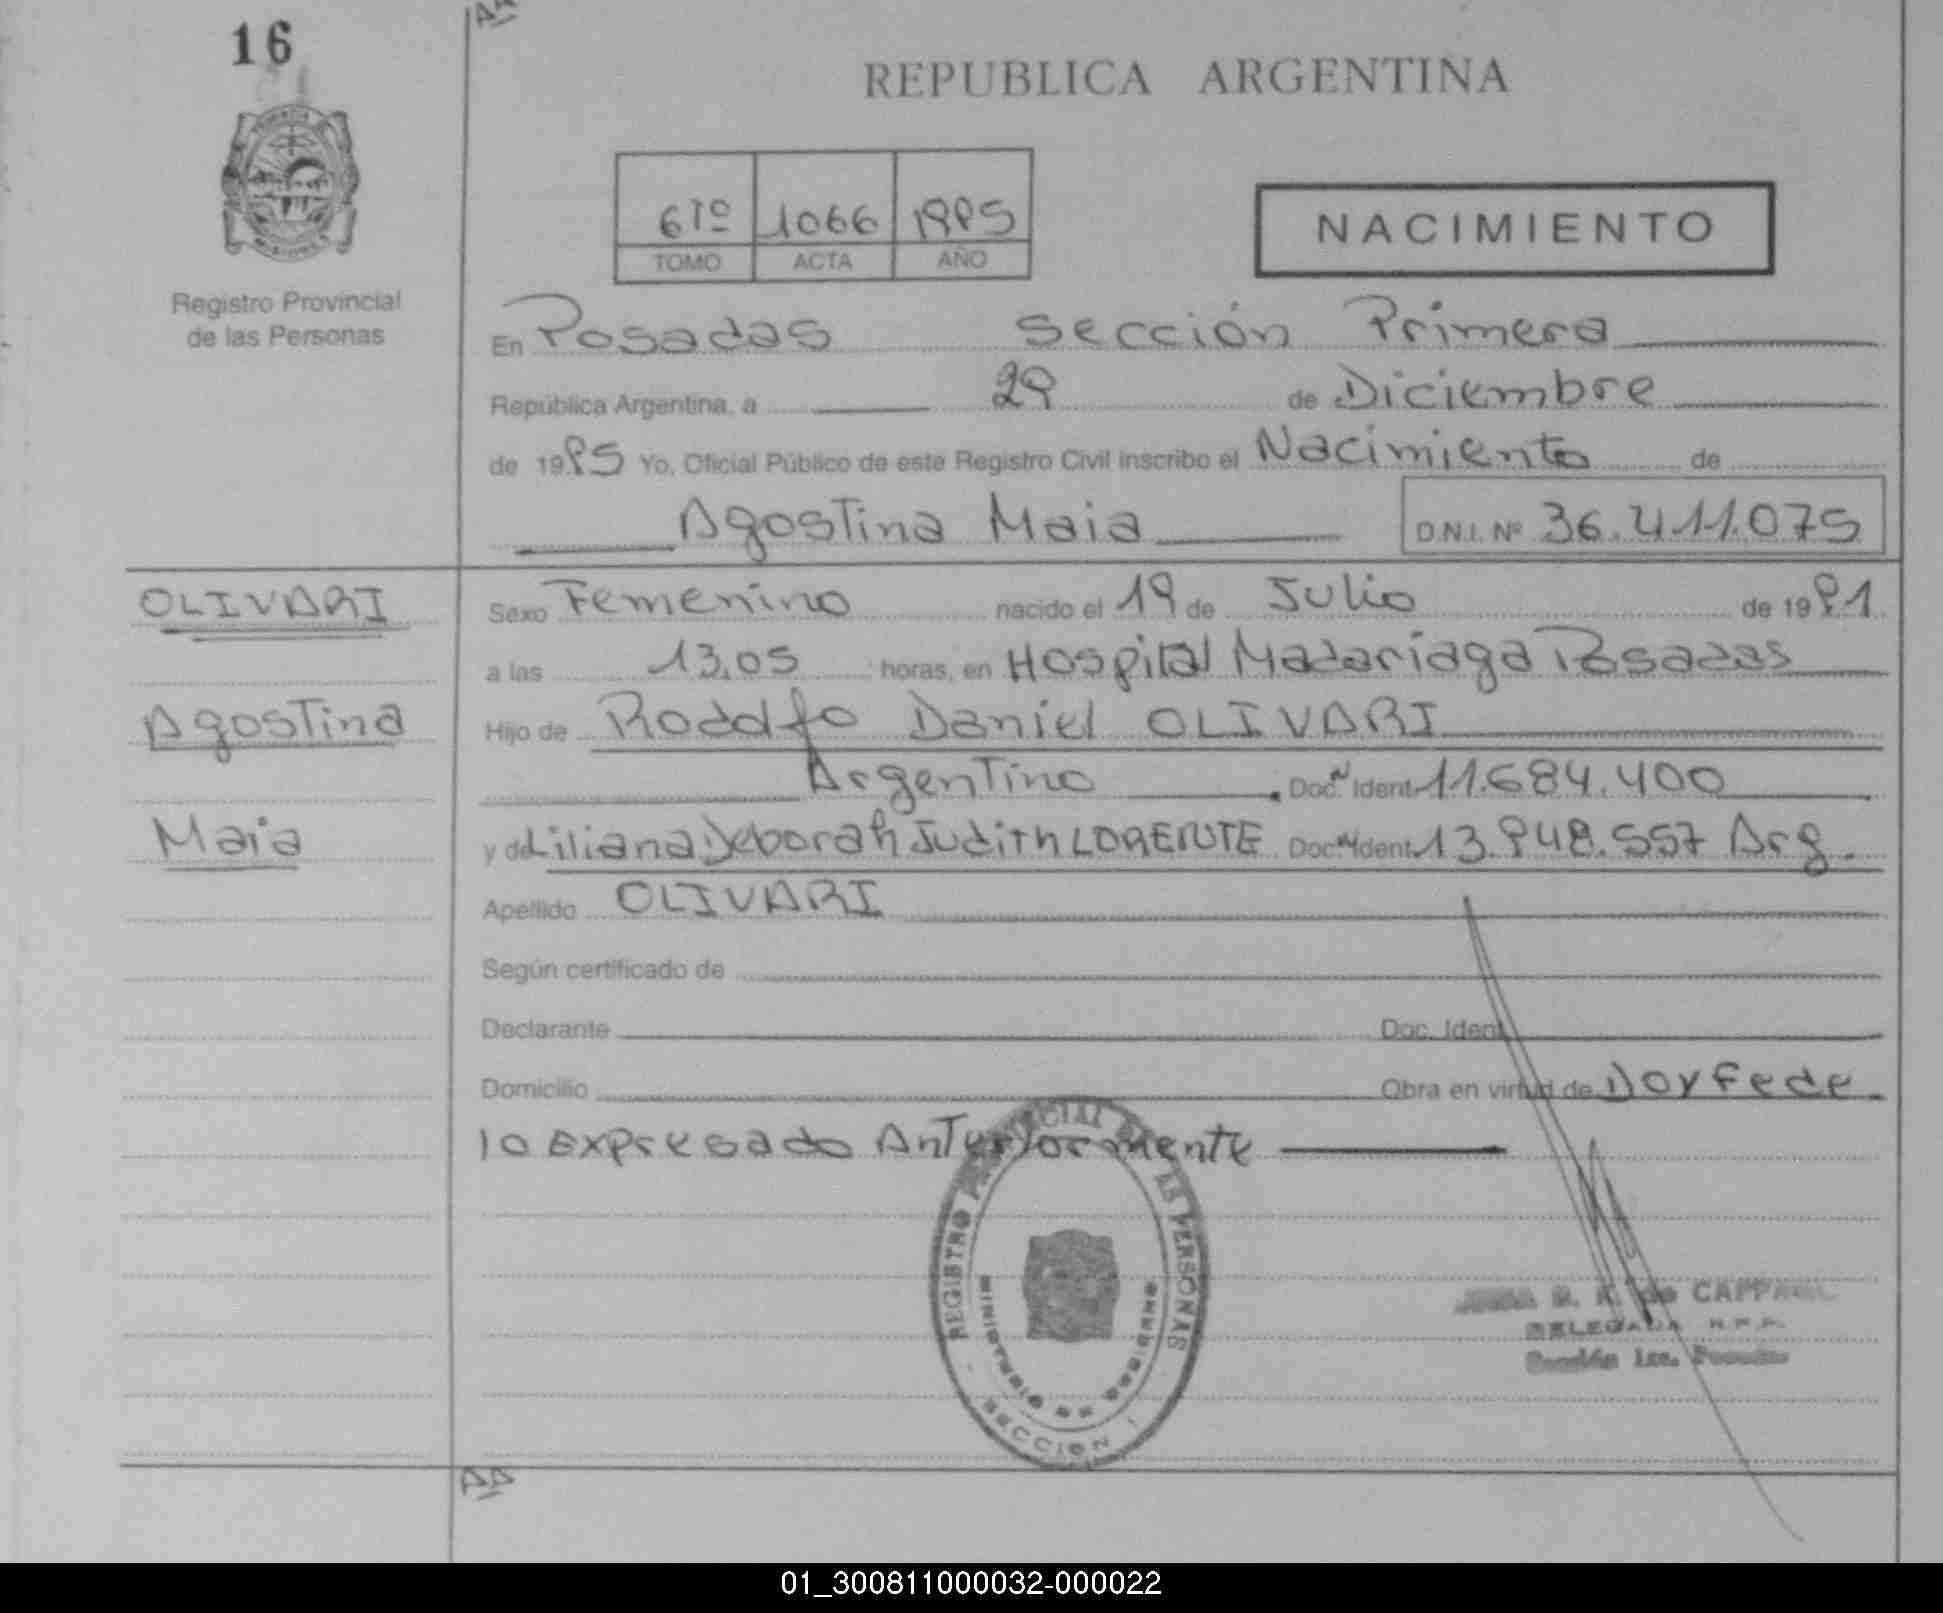 16
REPUBLICA ARGENTINA
6Tº 1066 1985
TOMO ACTA AÑO
NACIMIENTO
Registro Provincial
de las Personas
En Posadas Sección Primera
República Argentina, a 29 de Diciembre
de 1985 Yo, Oficial Público de este Registro Civil inscribo el Nacimiento de
Agostina Maia D.N.I. Nº 36.411.075
OLIVARI
Sexo Femenino nacido el 19 de Julio de 1981
a las 13,05 horas, en Hospital Madariaga Posadas
Agostina
Hijo de Rodolfo Daniel OLIVARI
Argentino Doc. Nº Ident 11.684.400
Maia
y de Liliana Deborah Judith LORENTE Doc. Nº Ident 13.848.557 Arg.
Apellido OLIVARI
Según certificado de
Declarante Doc. Ident
Domicilio Obra en virtud de Doy Fe de
lo Expresado Anteriormente
REGISTRO PROVINCIAL DE LAS PERSONAS
MINISTERIO DE GOBIERNO
SECCION 1
de
DELEGADA R.P.P.
Sección 1ra. Posadas
AA
01_300811000032-000022